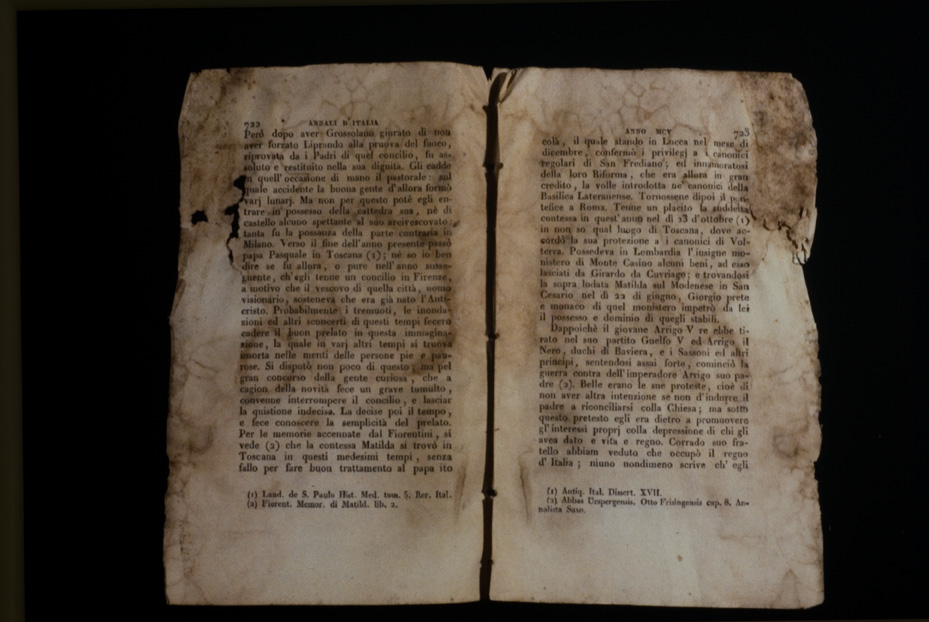 722 ANNALI D'ITALIA
Però dopo aver Grossolano giurato di non
aver forzato Liprando alla pruova del fuoco,
riprovata da i Padri di quel concilio, fu as-
soluto e restituito nella sua dignità. Gli cadde
in quell'occasione di mano il pastorale: sul
quale accidente la buona gente d'allora formò
varj lunarj. Ma non per questo potè egli en-
trare in possesso della cattedra sua, nè di
castello alcuno spettante al suo arcivescovato:
tanta fu la possanza della parte contraria in
Milano. Verso il fine dell'anno presente passò
papa Pasquale in Toscana (1); nè so io ben
dire se fu allora, o pure nell'anno susse-
guente, ch'egli tenne un concilio in Firenze,
a motivo che il vescovo di quella città, uomo
visionario, sosteneva che era già nato l'Anti-
cristo. Probabilmente i tremuoti, le inonda-
zioni ed altri sconcerti di questi tempi fecero
cadere il buon prelato in questa immagina-
zione, la quale in varj altri tempi si truova
insorta nelle menti delle persone pie e pau-
rose. Si disputò non poco di questo; ma pel
gran concorso della gente curiosa, che a
cagion della novità fece un grave tumulto,
convenne interrompere il concilio, e lasciar
la quistione indecisa. La decise poi il tempo,
e fece conoscere la semplicità del prelato.
Per le memorie accennate dal Fiorentini, si
vede (2) che la contessa Matilda si trovò in
Toscana in questi medesimi tempi, senza
fallo per fare buon trattamento al papa ito
(1) Land. de S. Paulo Hist. Med. tom. 5. Rer. Ital.
(2) Fiorent. Memor. di Matild. lib. 2.
ANNO MCV 723
colà, il quale stando in Lucca nel mese di
dicembre, confermò i privilegj a i canonici
regolari di San Frediano; ed innamoratosi
della loro Riforma, che era allora in gran
credito, la volle introdotta ne' canonici della
Basilica Lateranense. Tornossene dipoi il pon-
tefice a Roma. Tenne un placito la suddetta
contessa in quest'anno nel dì 23 d'ottobre (1)
in non so qual luogo di Toscana, dove ac-
cordò la sua protezione a i canonici di Vol-
terra. Possedeva in Lombardia l'insigne mo-
nistero di Monte Casino alcuni beni, ad esso
lasciati da Girardo da Cuvriago; e trovandosi
la sopra lodata Matilda sul Modenese in San
Cesario nel dì 22 di giugno, Giorgio prete
e monaco di quel monistero impetrò da lei
il possesso e dominio di quegli stabili.
Dappoichè il giovane Arrigo V re ebbe ti-
rato nel suo partito Guelfo V ed Arrigo il
Nero, duchi di Baviera, e i Sassoni ed altri
principi, sentendosi assai forte, cominciò la
guerra contra dell'imperadore Arrigo suo pa-
dre (2). Belle erano le sue proteste, cioè di
non aver altra intenzione se non d'indurre il
padre a riconciliarsi colla Chiesa; ma sotto
questo pretesto egli era dietro a promuovere
gl'interessi proprj colla depressione di chi gli
avea dato e vita e regno. Corrado suo fra-
tello abbiam veduto che occupò il regno
d'Italia; niuno nondimeno scrive ch'egli
(1) Antiq. Ital. Dissert. XVII.
(2) Abbas Urspergensis. Otto Frisingensis cap. 8. An-
nalista Saxo.